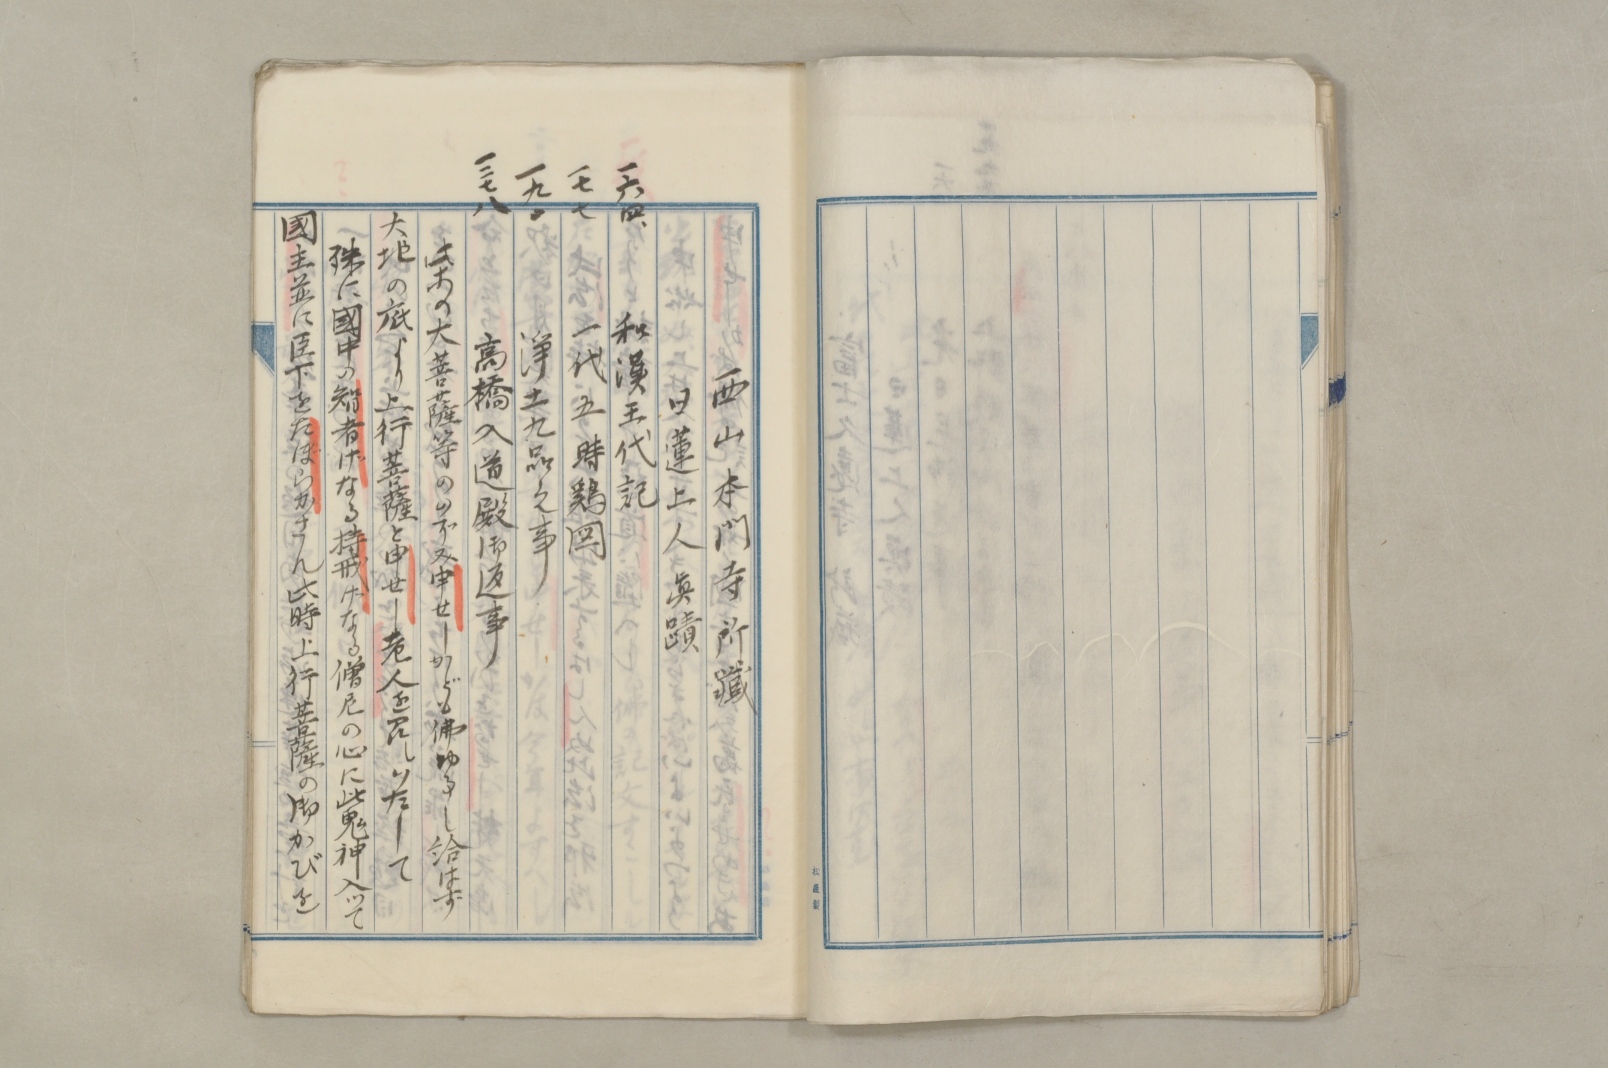 西山本門寺所蔵
日蓮上人眞蹟
一六四、和漢王代記
一七七 一代五時鶏図
一九〇 浄土九品之事
一三七八 高橋入道殿御返事
此等の大菩薩等ののぞみ申せしかども佛ゆるし給はず
大地の底より上行菩薩と申せし老人を召しいだして
殊に國中の智者げなる持戒げなる僧尼の心に此鬼神入つて
國主並に臣下をたぼらかさん此時上行菩薩の御かびを